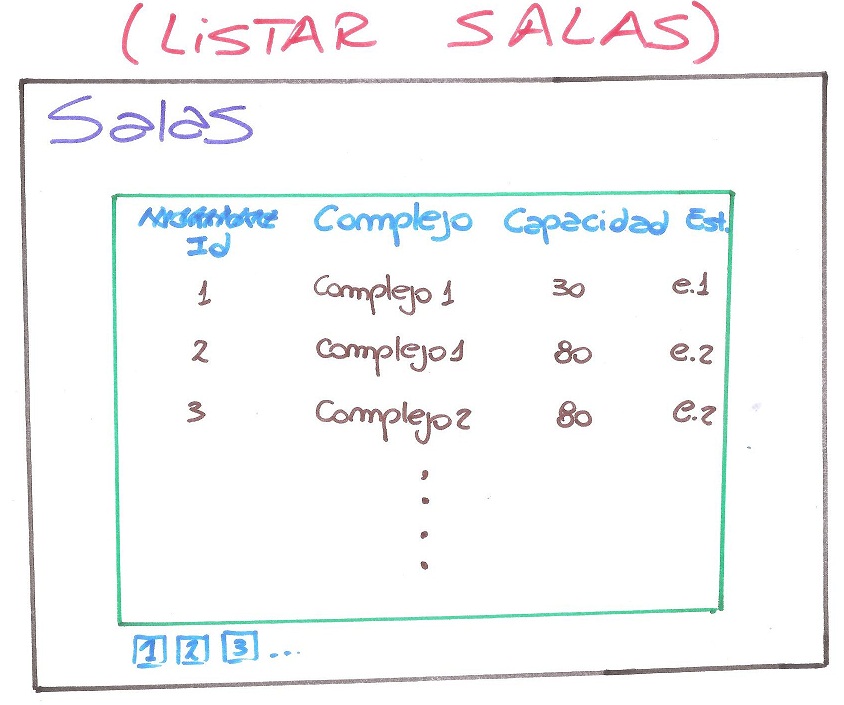 (LISTAR SALAS)
Salas
Complejo Capacidad Est.
Id
1 Complejo 1 30 e.1
2 Complejo1 80 e.2
3 Complejo2 80 e.2
1 2 3 ...